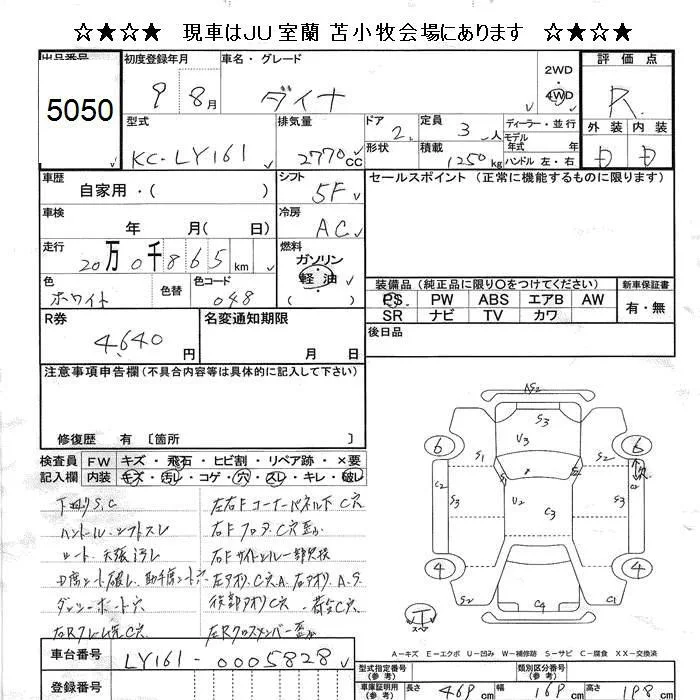 ☆★☆★ 現車はJU室蘭 苫小牧会場にあります ☆★☆★
出品番号
5050
初度登録年月
9 8月
車名・グレード
ダイナ
2WD
4WD
評価点
R
型式
KC-LY161
排気量
2770CC
ドア
2
形状
定員
3人
積載
1250kg
ディーラー・並行
モデル
年式 年
ハンドル 左・右
外装 内装
D D
車歴
自家用・( )
シフト
5F
セールスポイント (正常に機能するものに限ります)
車検
年 月( 日)
冷房
AC
走行
20万0千865km
燃料
ガソリン
軽油
( )
色
ホワイト
色替
色コード
048
装備品 (純正品に限り〇をつけてください)
PS PW ABS エアB AW
SR ナビ TV カワ
新車保証書
有・無
R券
4,640円
名変通知期限
月 日
後日品
注意事項申告欄(不具合内容等は具体的に記入して下さい)
修復歴 有 〔箇所 〕
検査員
記入欄
FW キズ・飛石・ヒビ割・リペア跡・×要
内装 キズ・汚レ・コゲ・穴・スレ・キレ・破レ
下回りS.C
ハンドル、シフトスレ
シート・天張汚レ
左右Fコーナーパネル下C穴
右FフロアC穴歪ミ
左Rクロスメンバー歪ミ
右Rフレーム先C穴
AS2
S3
V3
6
6
S1
S2
S2
C2
S3
U2
C3
S3
C2
4
4
S2
C4
C1
A-キズ E-エクボ U-凹み W-補修跡 S-サビ C-腐食 XX-交換済
車台番号
LY161-0005828
登録番号
型式指定番号
(参考)
類別区分番号
(参考)
車庫証明用
(参考)
長さ 469cm
幅 169cm
高さ 198cm